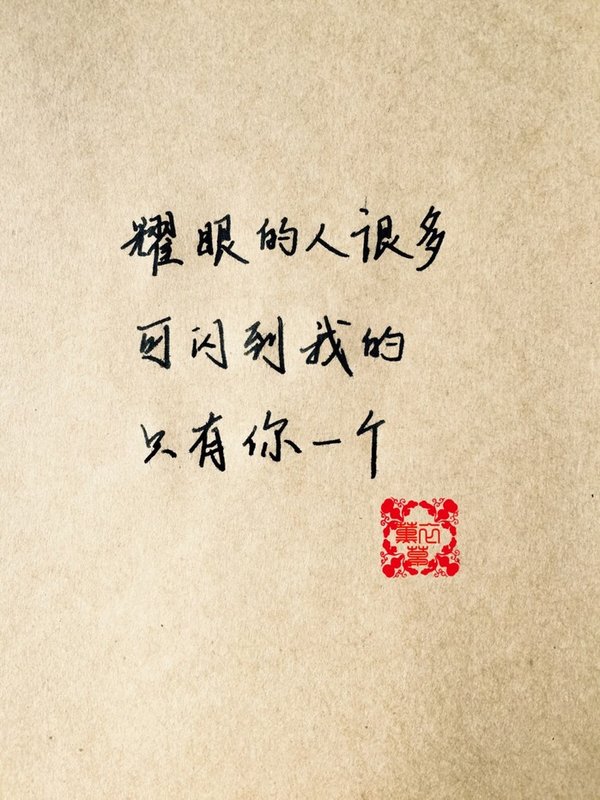 耀眼的人很多
可闪到我的
只有你一个